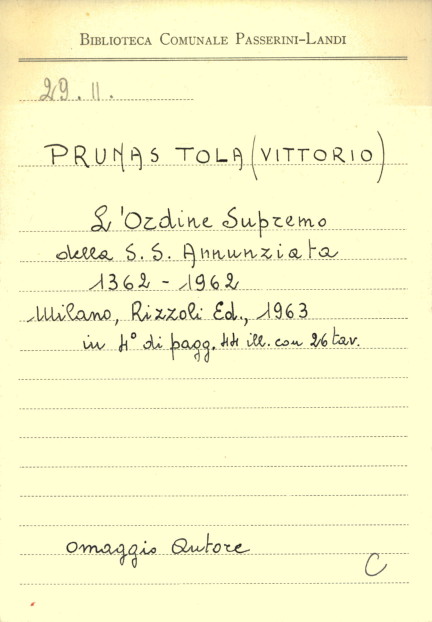 BIBLIOTECA COMUNALE PASSERINI-LANDI
29.11.
PRUNAS TOLA (VITTORIO)
L'Ordine Supremo
della S.S. Annunziata
1362 - 1962
Milano, Rizzoli Ed., 1963
in 4° di pagg. 44 ill. con 26 tav.
Omaggio Autore
C